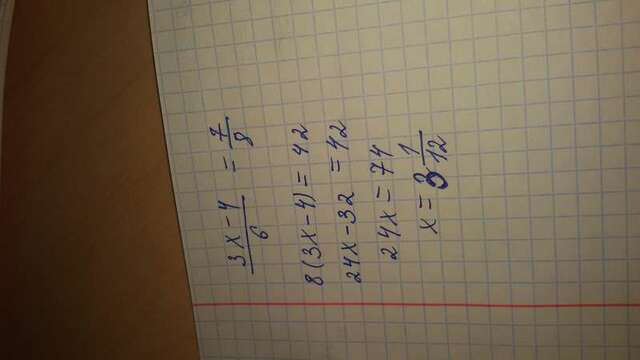 (3x-4)/6 = 7/8
8(3x-4) = 42
24x-32 = 42
24x = 74
x = 3 1/12